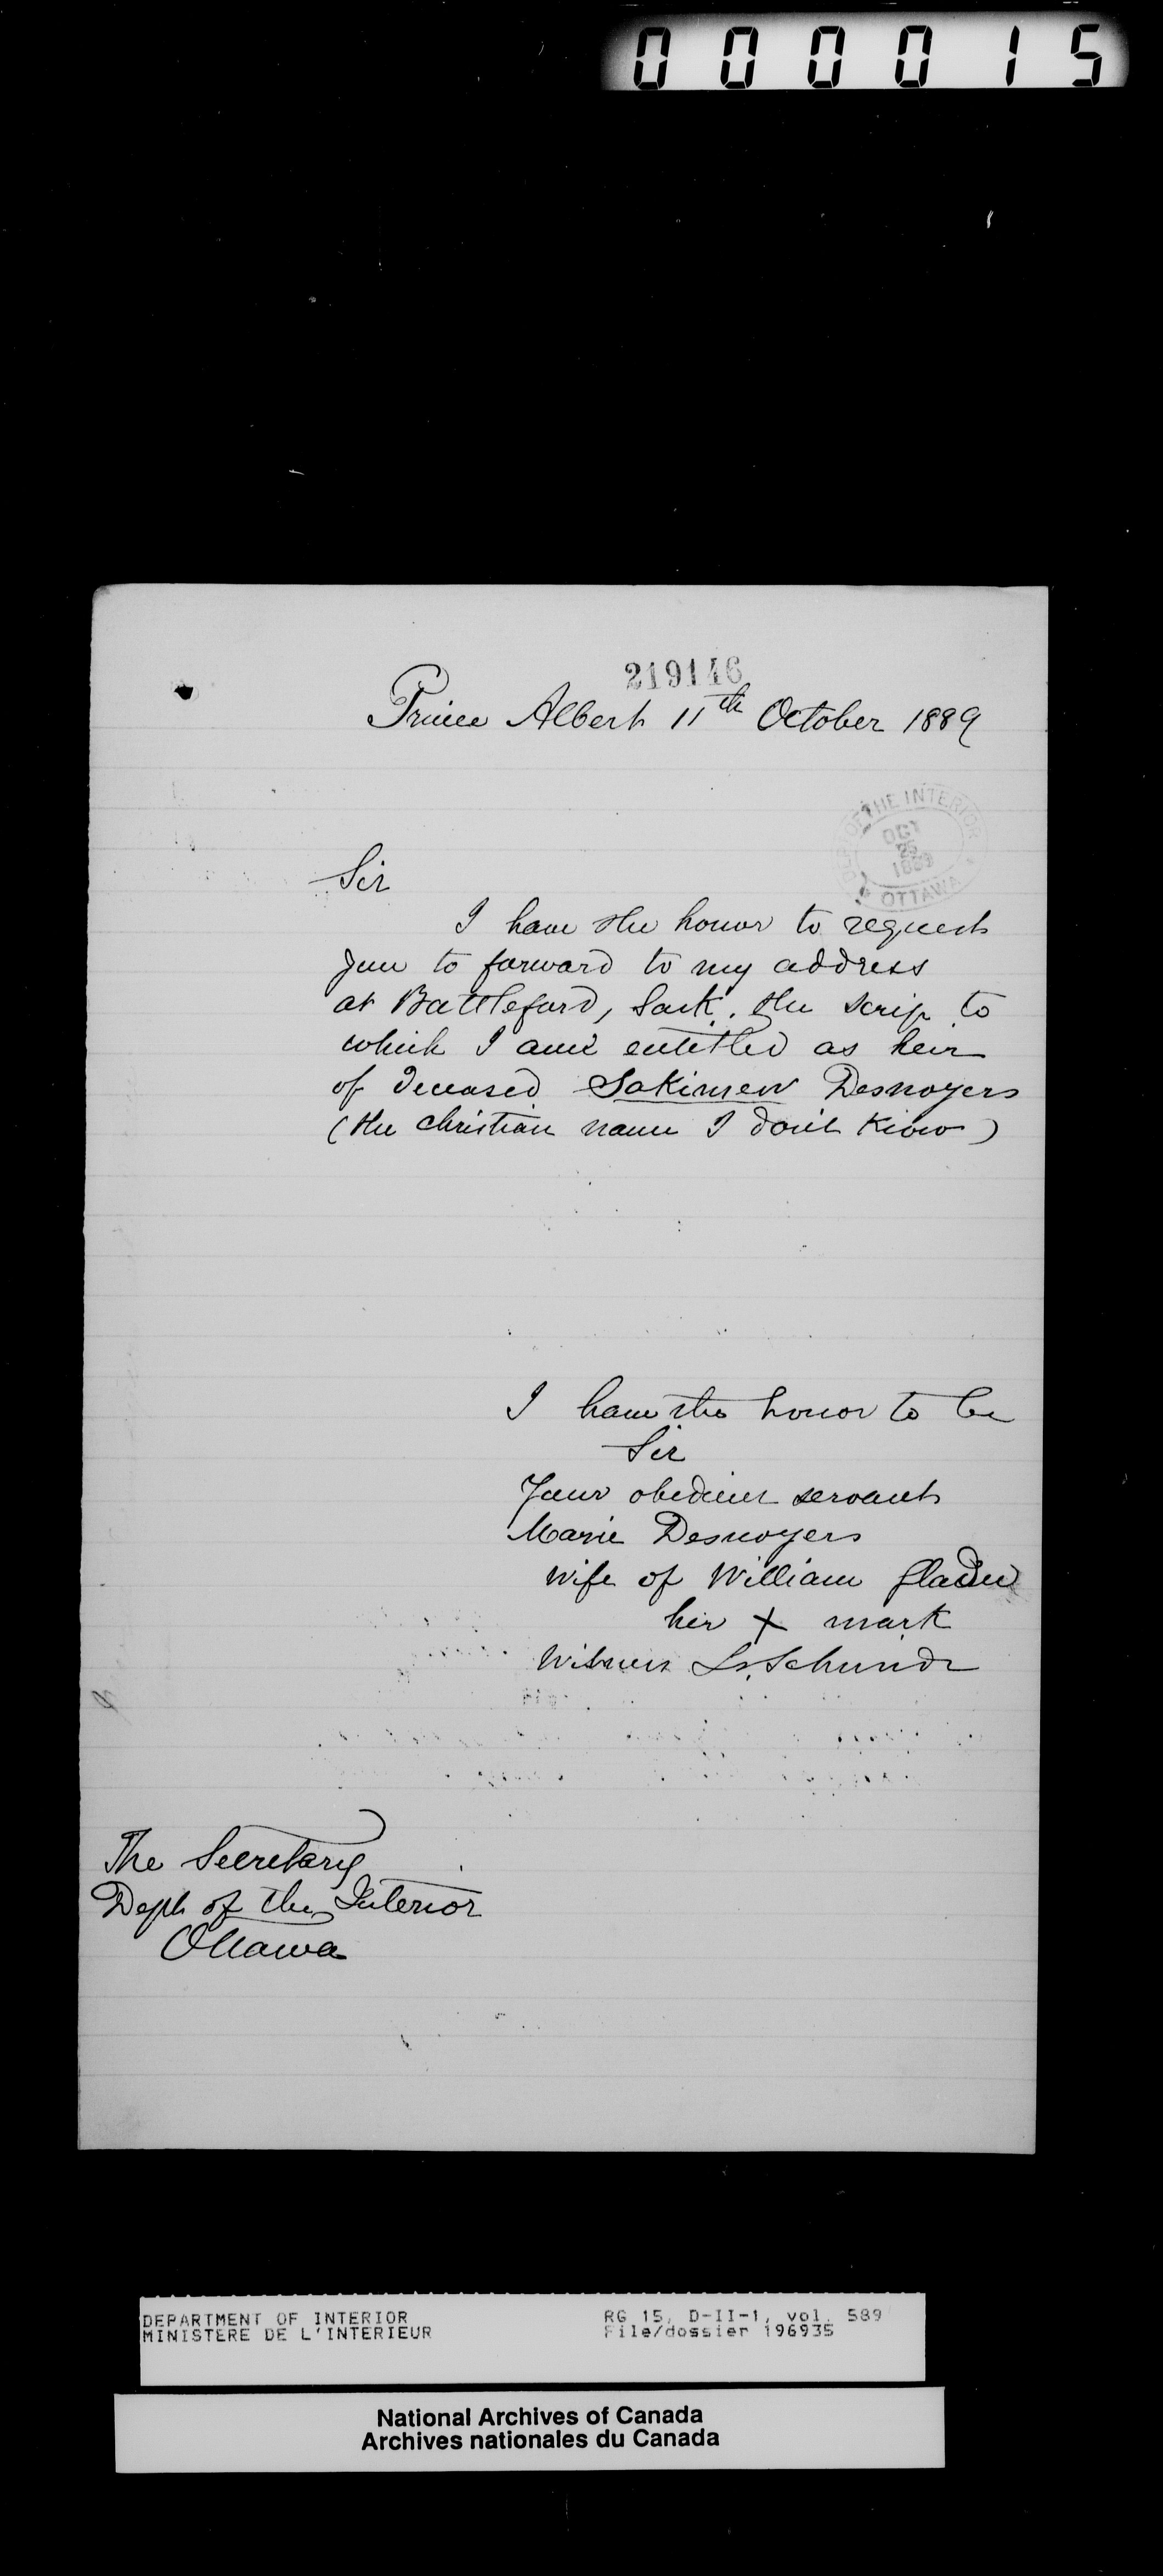 000015
219146
Prince Albert 11th October 1889
DEPT OF THE INTERIOR
OCT
25
1889
OTTAWA
Sir
I have the honor to request
you to forward to my address
at Battleford, Sask. the scrip to
which I am entitled as heir
of deceased Sakimew Desnoyers
(the christian name I don't know)
I have the honor to be
Sir
Your obedient servant
Marie Desnoyers
wife of William Gladu
her X mark
Witness Ls. Schmidt
The Secretary
Dept of the Interior
Ottawa
DEPARTMENT OF INTERIOR
MINISTERE DE L'INTERIEUR
RG 15, D-II-1, vol. 589
File/dossier 196935
National Archives of Canada
Archives nationales du Canada